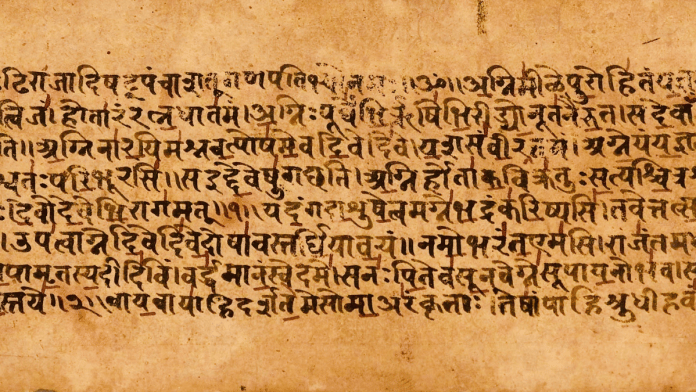 गणपति ॥ॐ॥अग्निमीळेपुरोहितंय
त्विजं।होतारंरत्नधातमं।अग्निःपूर्वेभिर्ऋषिभिरीड्योनूतनैरुत।सदेवाँ
ति॥अग्निनारयिमश्नवत्पोषमेवदिवेदिवे।यशसंवीर अग्नेयंयज्ञ
श्वतःपरिभूरसि॥सइद्देवेषुगच्छति।अग्निर्होताकविक्रतुःसत्यश्चित्र
देवोदेवेभिरागमत्॥१॥यदंगदाशुषेत्वमग्नेभद्रंकरिष्यसि।तवेत्तत्स
।उपत्वाग्नेदिवेदिवेदोषावस्तर्धियावयं॥नमोभरंतएमसि।राजंतम
पामृतस्यदीदिविं।वर्द्धमानंस्वेदमे।सनःपितेवसूनवेग्नेसूपायनोभव।स
स्तये॥२॥वायवायाहिदर्शतेमेसोमाअरंकृताः।तेषांपाहिश्रुधीहवं